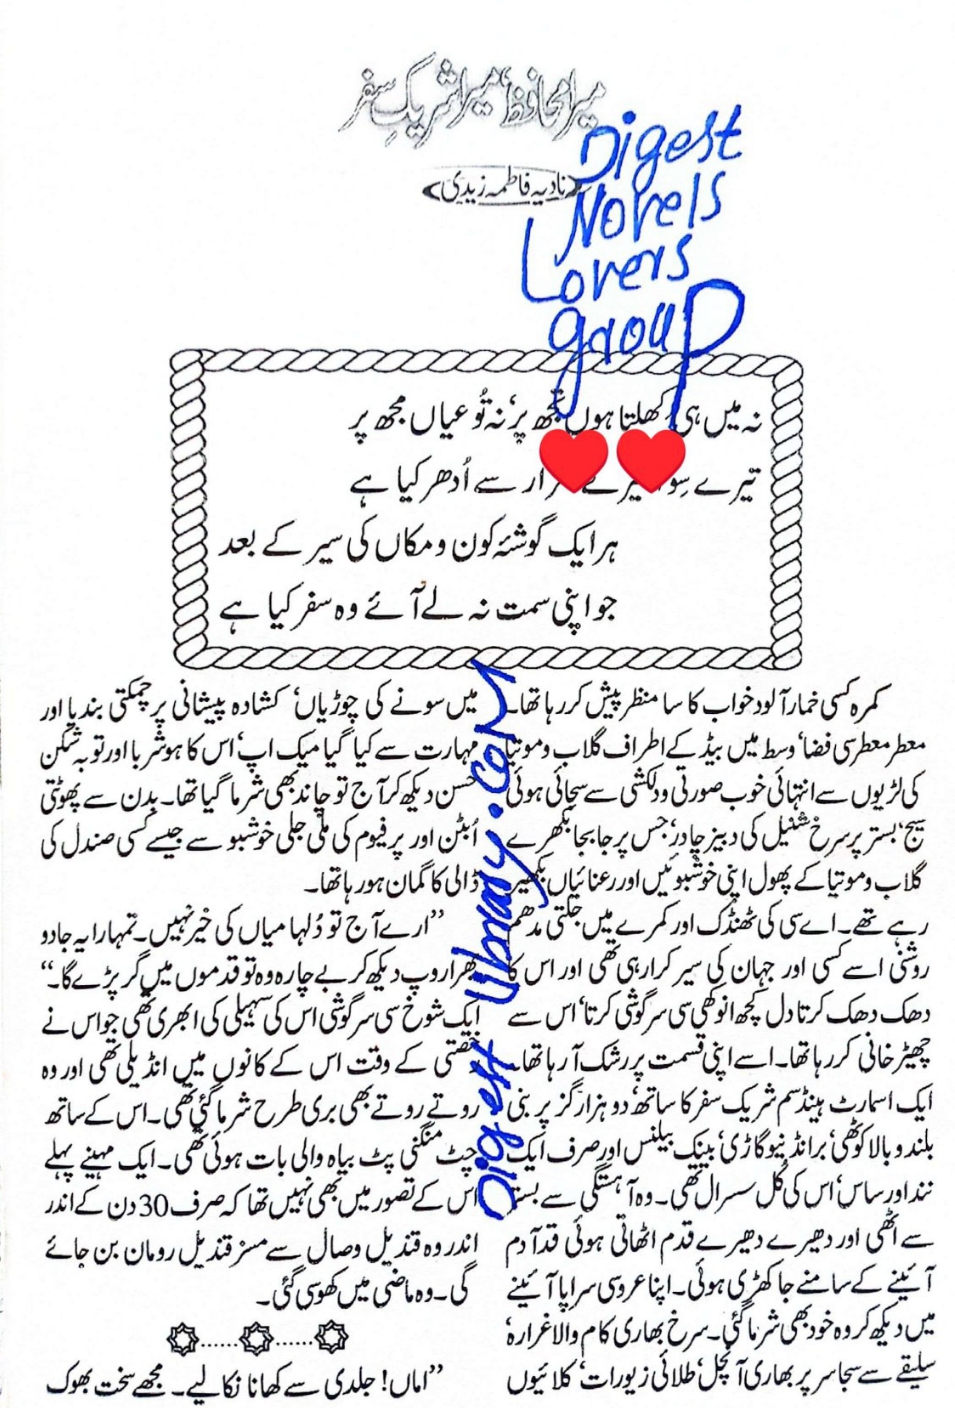 میرا محافظ، میرا شریکِ سفر
نادیہ فاطمہ زیدی
Digest
Novels
Lovers
group
نہ میں ہی کھلتا ہوں تجھ پر، نہ تُو عیاں مجھ پر
تیرے سِو سے اُدھر کیا ہے
ہر ایک گوشۂ کون و مکاں کی سیر کے بعد
جو اپنی سمت نہ لے آئے وہ سفر کیا ہے
کمرہ کسی خمار آلود خواب کا سا منظر پیش کر رہا تھا۔
معطر معطر سی فضا، وسط میں بیڈ کے اطراف گلاب و موتیا
کی لڑیوں سے انتہائی خوب صورتی و دلکشی سے سجائی ہوئی
سیج، بستر پر سرخ شنیل کی دبیز چادر، جس پر جابجا بکھرے
گلاب و موتیا کے پھول اپنی خوشبوئیں اور رعنائیاں بکھیر
رہے تھے۔ اے سی کی ٹھنڈک اور کمرے میں جلتی مدھم
روشنی اسے کسی اور جہان کی سیر کرا رہی تھی اور اس کا
دھک دھک کرتا دل کچھ انوکھی سی سرگوشی کرتا، اس سے
چھیڑ خانی کر رہا تھا۔ اسے اپنی قسمت پر رشک آ رہا تھا۔
ایک اسمارٹ ہینڈسم شریک سفر کا ساتھ، دو ہزار گز پر بنی
بلند و بالا کوٹھی، برانڈ نیو گاڑی، بینک بیلنس اور صرف ایک
نند اور ساس، اس کی کُل سسرال تھی۔ وہ آہستگی سے بستر
سے اٹھی اور دھیرے دھیرے قدم اٹھاتی ہوئی قد آدم
آئینے کے سامنے جا کھڑی ہوئی۔ اپنا عروسی سراپا آئینے
میں دیکھ کر وہ خود بھی شرما گئی۔ سرخ بھاری کام والا غرارہ،
سلیقے سے سجا سر پر بھاری آنچل، طلائی زیورات، کلائیوں
میں سونے کی چوڑیاں، کشادہ پیشانی پر چمکتی بندیا اور
مہارت سے کیا گیا میک اپ، اس کا ہوشربا اور توبہ شکن
حسن دیکھ کر آج تو چاند بھی شرما گیا تھا۔ بدن سے پھوٹتی
اُبٹن اور پرفیوم کی ملی جلی خوشبو سے جیسے کسی صندل کی
ڈالی کا گمان ہو رہا تھا۔
”ارے آج تو دُلہا میاں کی خیر نہیں۔ تمہارا یہ جادو
بھرا روپ دیکھ کر بے چارہ وہ تو قدموں میں گر پڑے گا۔“
ایک شوخ سی سرگوشی اس کی سہیلی کی ابھری تھی جو اس نے
رخصتی کے وقت اس کے کانوں میں انڈیلی تھی اور وہ
روتے روتے بھی بری طرح شرما گئی تھی۔ اس کے ساتھ
چٹ منگنی پٹ بیاہ والی بات ہوئی تھی۔ ایک مہینے پہلے
اس کے تصور میں بھی نہیں تھا کہ صرف 30 دن کے اندر
اندر وہ قندیل وصال سے مسز قندیل رومان بن جائے
گی۔ وہ ماضی میں کھو سی گئی۔
”اماں! جلدی سے کھانا نکالیے۔ مجھے سخت بھوک
Digest Library.com